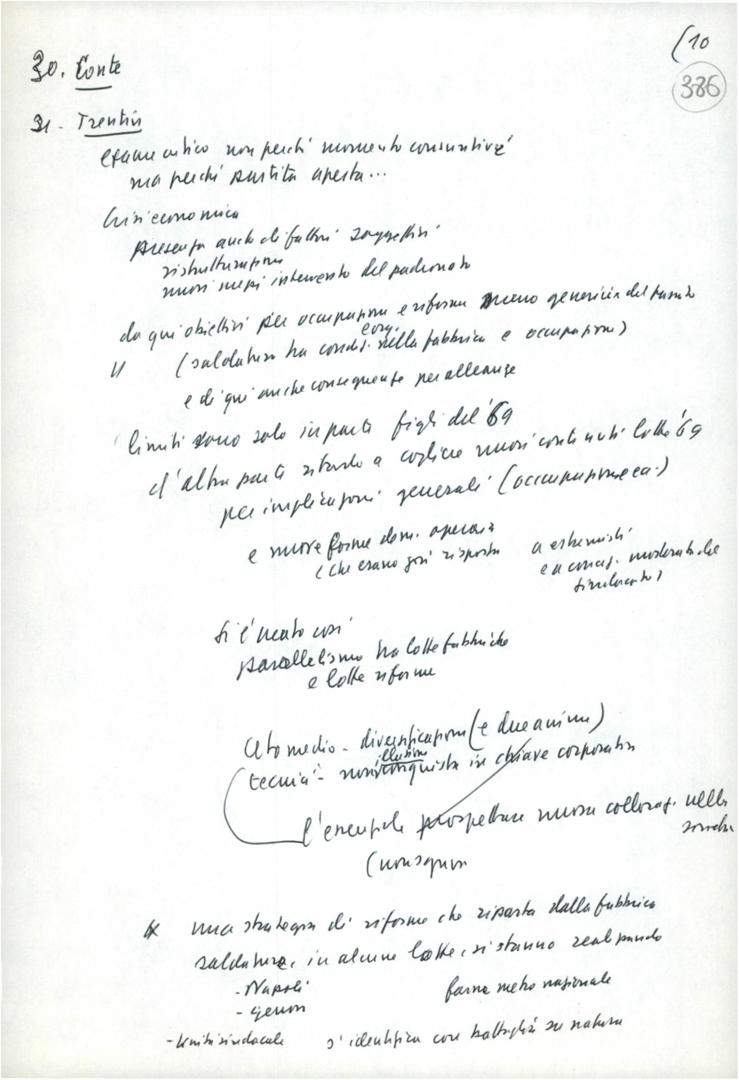 (10
386
30. Conte
31 - Trentin
esame critico non perché momento consuntivo
ma perché partita aperta...
Crisi economica
presenza anche di fattori soggettivi
ristrutturazione
nuovi intervento del padronato
da qui obiettivi per occupazione e riforme meno generici del passato
(saldatura tra condiz. nella fabbrica e occupazione)
e di qui anche conseguenze per alleanze
limiti sono solo in parte figli del '69
d'altra parte ritardo a cogliere nuovi contenuti lotte '69
per implicazioni generali (occupazione ecc.)
e nuove forme dem. operaia
(che erano già risposta a estremisti
e a concez. moderate del
sindacato)
si è creato così
parallelismo tra lotte fabbriche
e lotte riforme
Ceto medio - diversificazione (e due anime)
tecnici - non illusione in chiave corporativa
l'essenziale prospettare nuova collocaz. nella
una strategia di riforme che riparta dalla fabbrica
saldatura, in alcune lotte, si stanno realizzando
- Napoli
- Genova
- Unità sindacale s'identifica con battaglia su natura